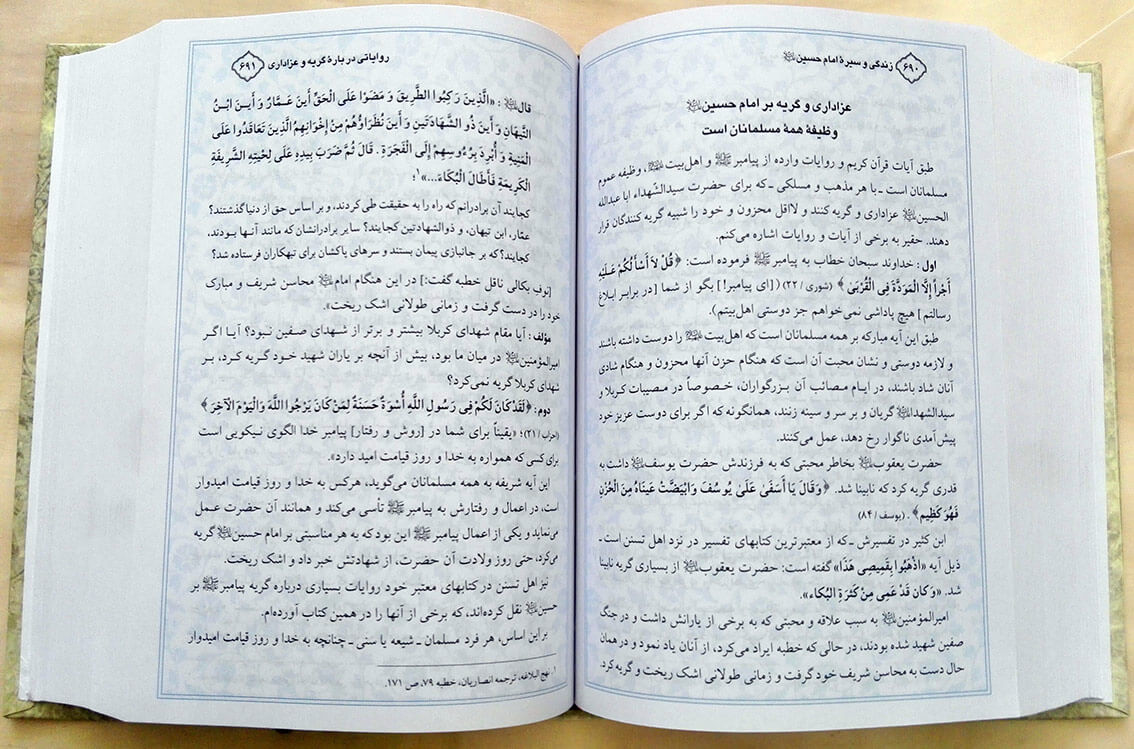 ۶۹۰ زندگی و سیرهٔ امام حسین ﷺ
عزاداری و گریه بر امام حسین ﷺ
وظیفهٔ همهٔ مسلمانان است
طبق آیات قرآن کریم و روایات وارده از پیامبر ﷺ و اهل‌بیت ﷺ، وظیفه عموم
مسلمانان است ـ با هر مذهب و مسلکی ـ که برای حضرت سیدالشّهداء ابا عبدالله
الحسین ﷺ عزاداری و گریه کنند و لااقل محزون و خود را شبیه گریه کنندگان قرار
دهند. حقیر به برخی از آیات و روایات اشاره می‌کنم.
اول: خداوند سبحان خطاب به پیامبر ﷺ فرموده است: ﴿قُلْ لاَ أَسْأَلُكُمْ عَلَيْهِ
أَجْراً إِلَّا الْمَوَدَّةَ فِي الْقُرْبَىٰ﴾ (شوری / ۲۲) ([ای پیامبر!] بگو از شما [در برابر ابلاغ
رسالتم] هیچ پاداشی نمی‌خواهم جز دوستی اهل‌بیتم).
طبق این آیه مبارکه بر همه مسلمانان است که اهل‌بیت ﷺ را دوست داشته باشند
و لازمه دوستی و نشان محبت آن است که هنگام حزن آنها محزون و هنگام شادی
آنان شاد باشند، در ایام مصائب آن بزرگواران، خصوصاً در مصیبات کربلا و
سیدالشهداء ﷺ گریان و بر سر و سینه زنند، همانگونه که اگر برای دوست عزیز خود
پیش‌آمدی ناگوار رخ دهد، عمل می‌کنند.
حضرت یعقوب ﷺ بخاطر محبتی که به فرزندش حضرت یوسف ﷺ داشت به
قدری گریه کرد که نابینا شد. ﴿وَقَالَ يَا أَسَفَىٰ عَلَىٰ يُوسُفَ وَابْيَضَّتْ عَيْنَاهُ مِنَ الْحُزْنِ
فَهُوَ كَظِيم﴾. (یوسف / ۸۴)
ابن کثیر در تفسیرش ـ که از معتبرترین کتابهای تفسیر در نزد اهل تسنن است ـ
ذیل آیه «اذْهَبُوا بِقَمِيصِي هَذَا» گفته است: حضرت یعقوب ﷺ از بسیاری گریه نابینا
شد. «وَكَانَ قَدْ عَمِيَ مِنْ كَثْرَةِ الْبُكَاء».
امیرالمؤمنین ﷺ به سبب علاقه و محبتی که به برخی از یارانش داشت و در جنگ
صفین شهید شده بودند، در حالی که خطبه ایراد می‌کرد، از آنان یاد نمود و در همان
حال دست به محاسن شریف خود گرفت و زمانی طولانی اشک ریخت و گریه کرد.
روایاتی دربارهٔ گریه و عزاداری ۶۹۱
قال ﷺ: «الَّذِينَ رَكِبُوا الطَّرِيقَ وَ مَضَوْا عَلَى الْحَقِّ أَيْنَ عَمَّارٌ وَ أَيْنَ ابْنُ
التَّيِّهَانِ وَ أَيْنَ ذُو الشَّهَادَتَيْنِ وَ أَيْنَ نُظَرَاؤُهُمْ مِنْ إِخْوَانِهِمُ الَّذِينَ تَعَاقَدُوا عَلَى
الْمَنِيَّةِ وَ أُبْرِدَ بِرُءُوسِهِمْ إِلَى الْفَجَرَةِ. قَالَ ثُمَّ ضَرَبَ بِيَدِهِ عَلَى لِحْيَتِهِ الشَّرِيفَةِ
الْكَرِيمَةِ فَأَطَالَ الْبُكَاءَ...»۱؛
کجایند آن برادرانم که راه را به حقیقت طی کردند، و بر اساس حق از دنیا گذشتند؟
عمّار، ابن تیهان، و ذوالشهادتین کجایند؟ سایر برادرانشان که مانند آنها بودند،
کجایند؟ که بر جانبازی پیمان بستند و سرهای پاکشان برای تبهکاران فرستاده شد؟
[نوف بکالی ناقل خطبه گفت:] در این هنگام امام ﷺ محاسن شریف و مبارک
خود را در دست گرفت و زمانی طولانی اشک ریخت».
مؤلف: آیا مقام شهدای کربلا بیشتر و برتر از شهدای صفین نبود؟ آیا اگر
امیرالمؤمنین ﷺ در میان ما بود، بیش از آنچه بر یاران شهید خود گریه کرد، بر
شهدای کربلا گریه نمی‌کرد؟
دوم: ﴿لَقَدْ كَانَ لَكُمْ فِي رَسُولِ اللَّهِ أُسْوَةٌ حَسَنَةٌ لِمَنْ كَانَ يَرْجُوا اللَّهَ وَالْيَوْمَ الْآخِرَ﴾
(احزاب / ۲۱)؛ «یقیناً برای شما در [روش و رفتار] پیامبر خدا الگوی نیکویی است
برای کسی که همواره به خدا و روز قیامت امید دارد».
این آیه شریفه به همه مسلمانان می‌گوید، هرکس به خدا و روز قیامت امیدوار
است، در اعمال و رفتارش به پیامبر ﷺ تأسی می‌کند و همانند آن حضرت عمل
می‌نماید و یکی از اعمال پیامبر ﷺ این بود که به هر مناسبتی بر امام حسین ﷺ گریه
می‌کرد، حتی روز ولادت آن حضرت، از شهادتش خبر داد و اشک ریخت.
نیز اهل تسنن در کتابهای معتبر خود روایات بسیاری درباره گریه پیامبر ﷺ بر
حسین ﷺ نقل کرده‌اند، که برخی از آنها را در همین کتاب آورده‌ام.
بر این اساس، هر فرد مسلمان ـ شیعه یا سنی ـ چنانچه به خدا و روز قیامت امیدوار
۱. نهج البلاغه، ترجمه انصاریان، خطبه ۷۹، ص ۱۷۱.